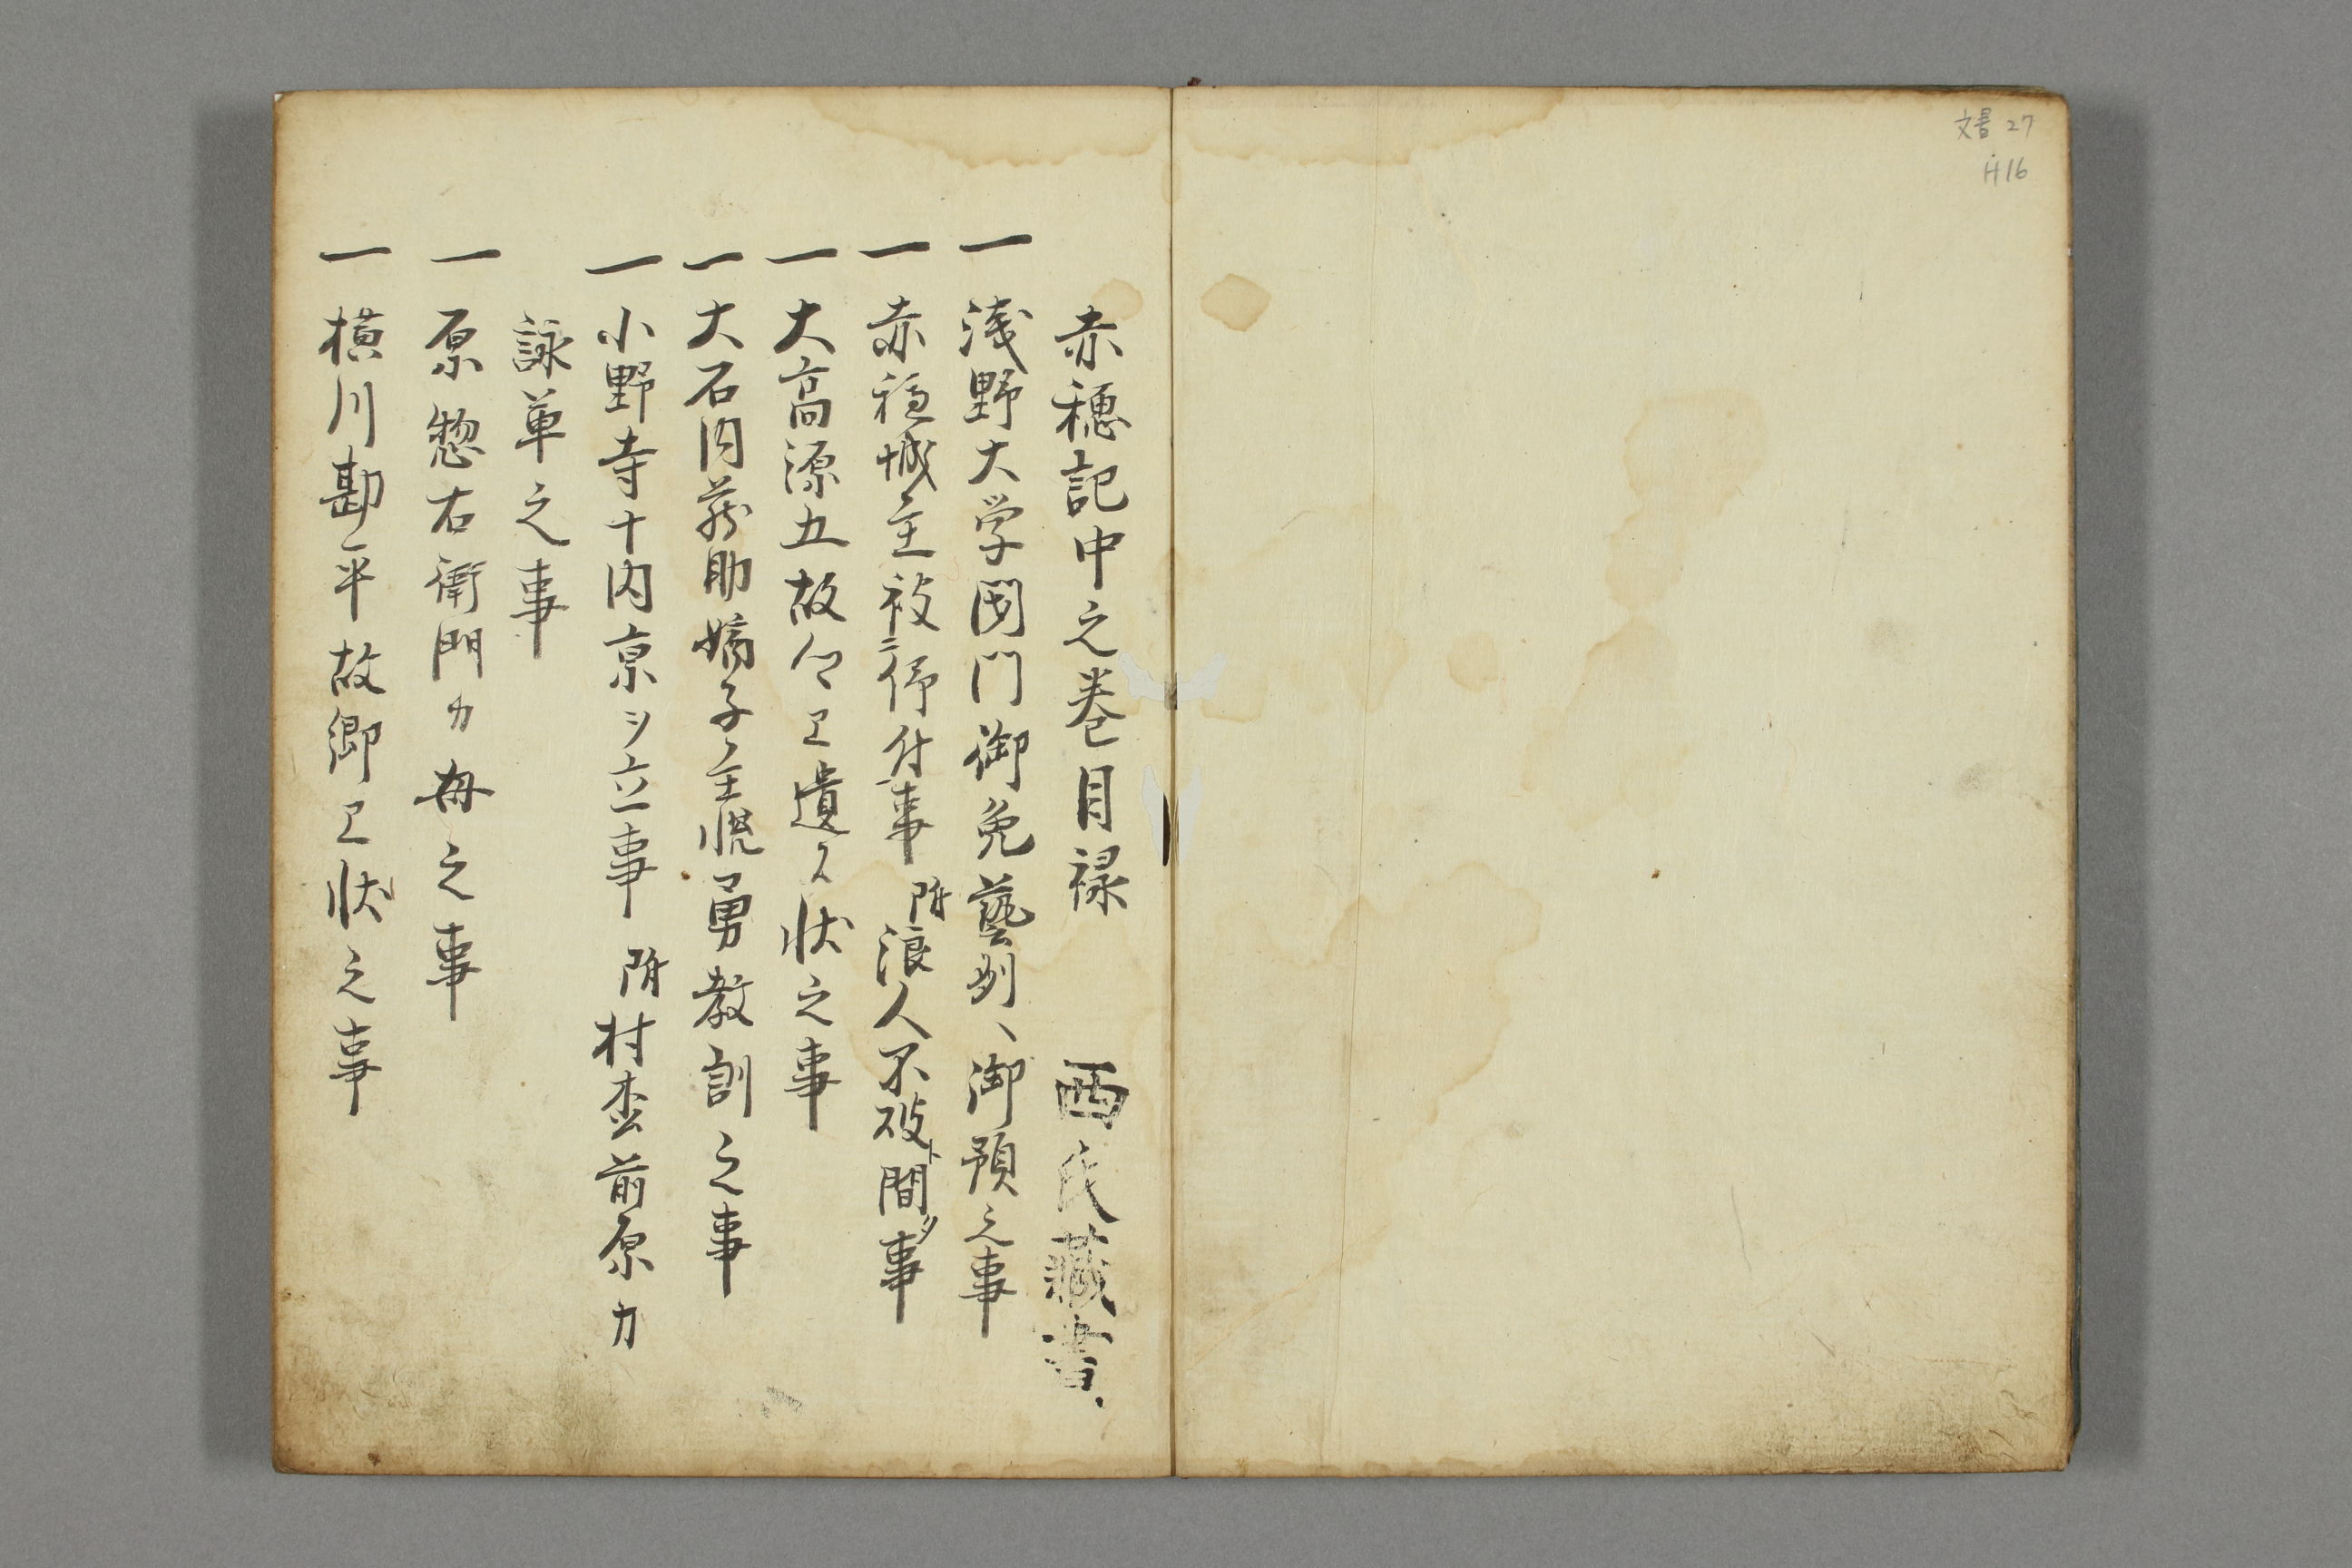 文書 27
H16
赤穂記中之巻目禄　西氏藏書
一 浅野大学閉門御免藝刕ヘ御預之事
一 赤穏城主被ニ仰付事 附浪人不破ト間タ事
一 大高源五故ヱ遺ス状之事
一 大石内蔵助嫡子主悦勇教訓之事
一 小野寺十内京ヲ立事 附村枩前原カ
詠草之事
一 原惣右衛門カ母之事
一 横川勘平故郷ヱ状之事